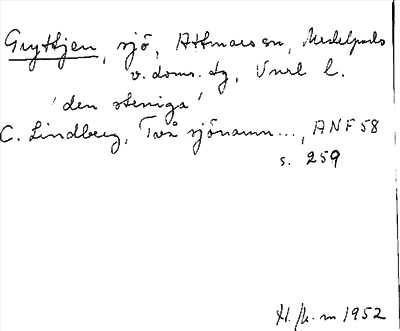 Gryttjen, sjö, Attmars sn, Medelpads
v. doms. tg, Vnrl l.
'den steniga'
C. Lindberg, Två sjönamn..., ANF 58
s. 259
1952